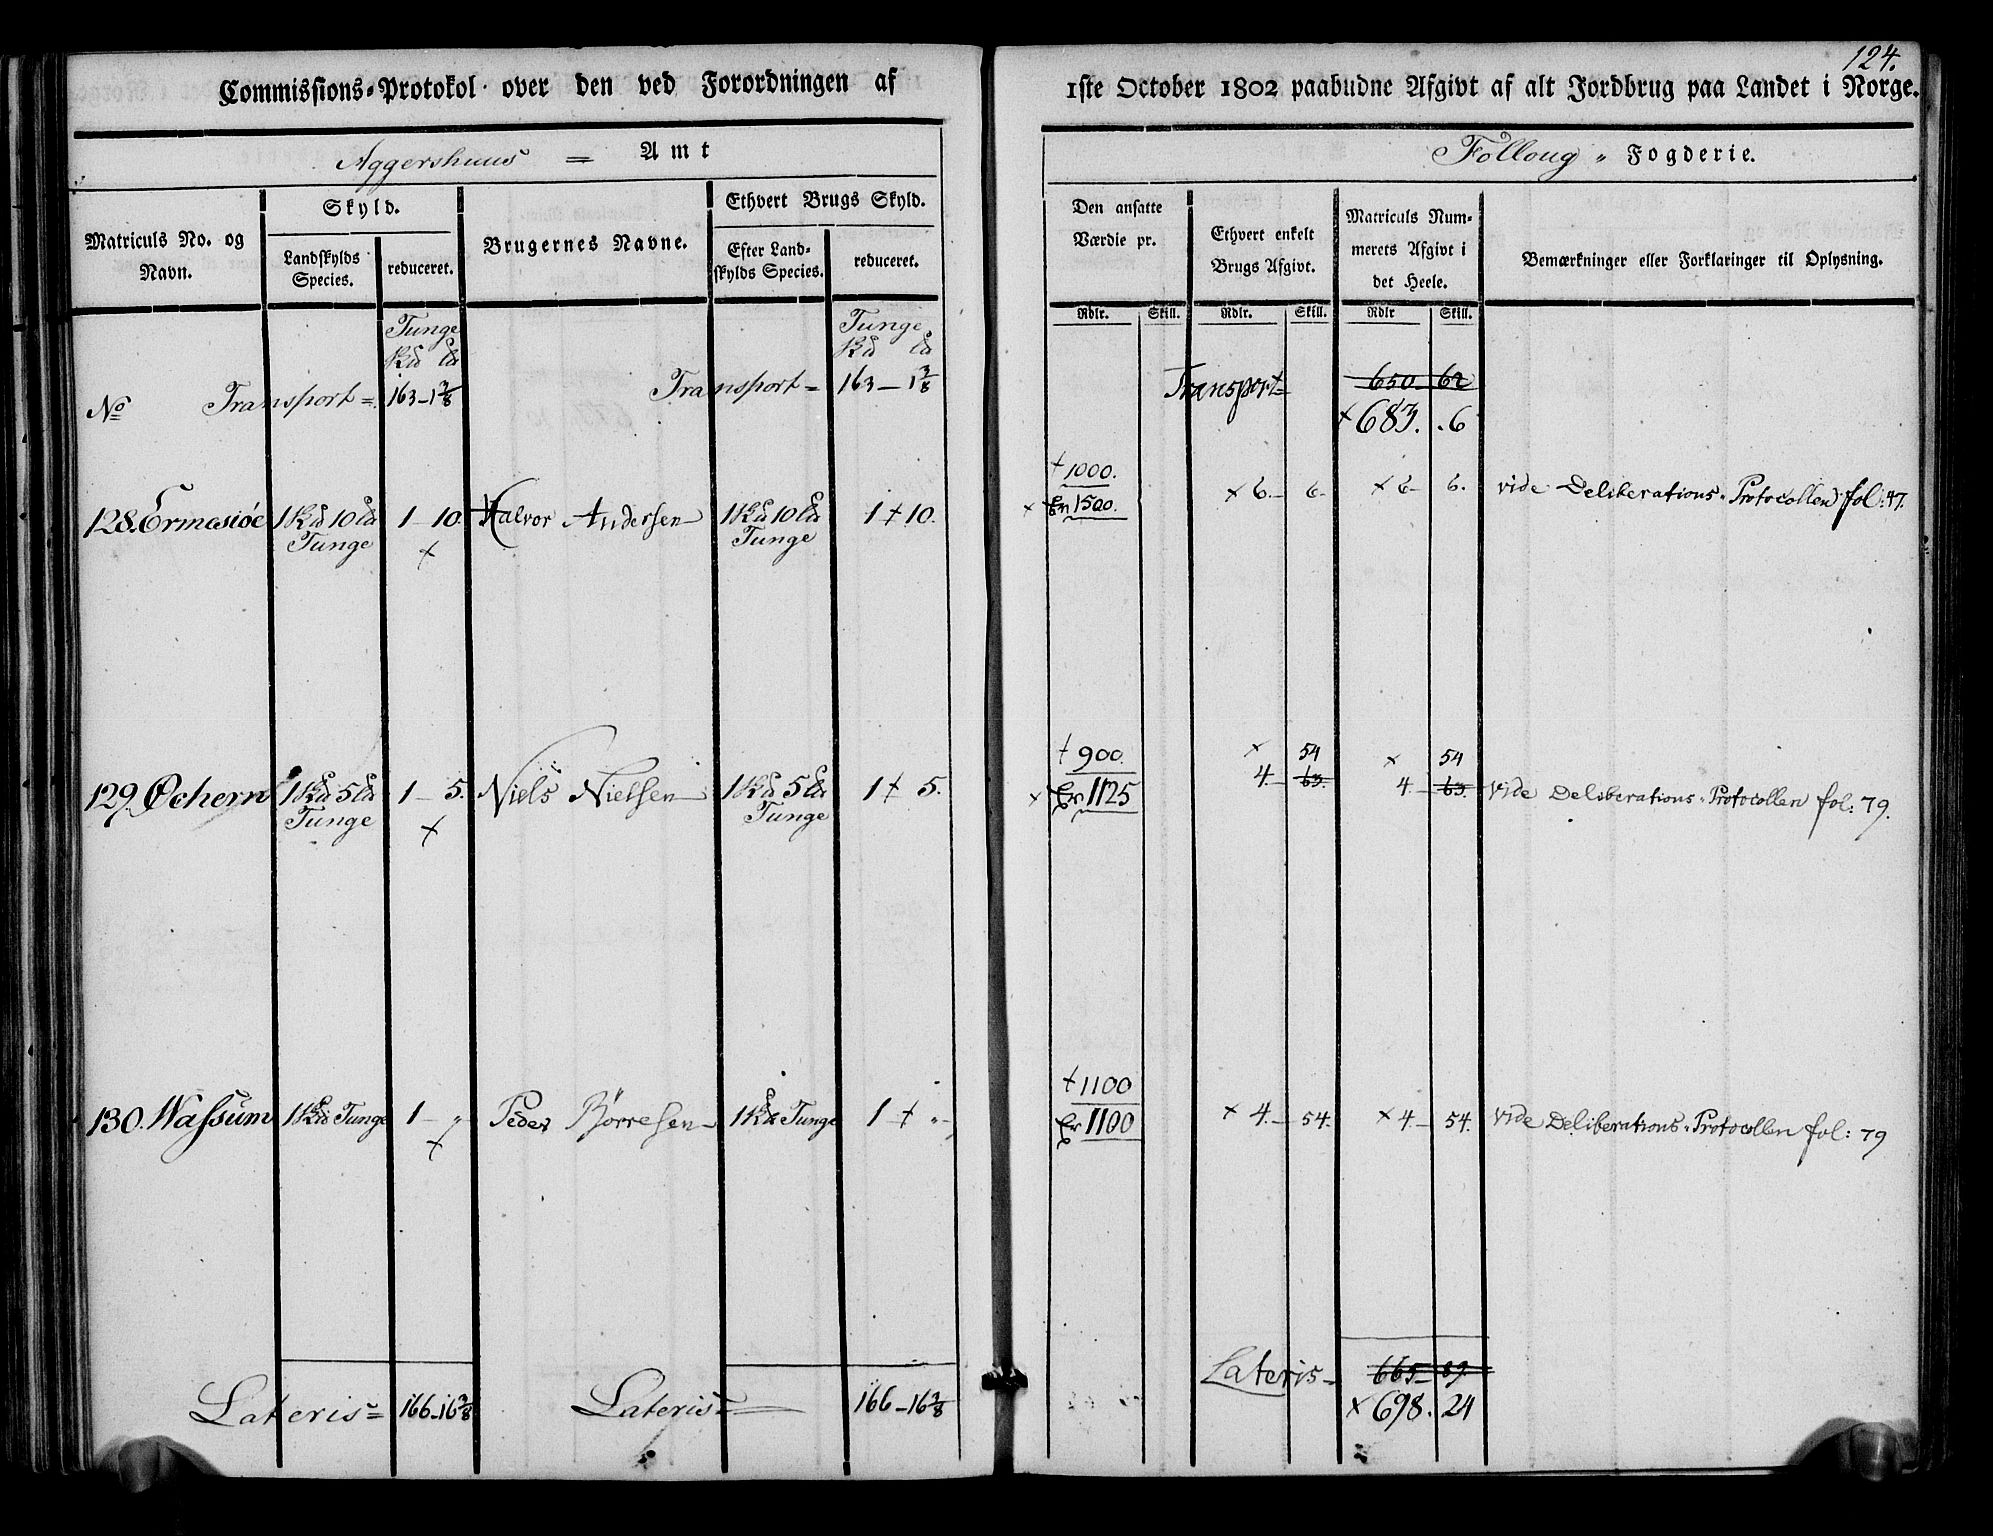 124.
Commissions-Protokol over den ved Forordningen af 1ste October 1802 paabudne Afgivt af alt Jordbrug paa Landet i Norge.
Aggershuus = Amt
Folloug " Fogderie.
Matriculs No. og Navn.
Skyld.
Landskylds Species.
reduceret.
Brugernes Navne.
Ethvert Brugs Skyld.
Efter Landskylds Species.
reduceret.
Den ansatte Værdie pr.
Ethvert enkelt Brugs Afgivt.
Matriculs Nummerets Afgivt i det Heele.
Bemærkninger eller Forklaringer til Oplysning.
Rdlr. Skill. Rdlr. Skill. Rdlr Skill.
Tunge Tunge
No Transport = 163 - 1 3/8 Transport = 163 - 1 3/8 Transport = 650 - 62
× 683. . 6
† 1000.
128. Ermesiøe 1 Skd 10 Ld Tunge 1 - 10. Halvor Andersen 1 Skd 10 Ld Tunge 1 † 10. × Er 1500. × 6. - 6. × 6 - 6. vide Deliberations-Protocollen fol: 47.
† 900. × 54 × 54
129. Ochern 1 Skd 5 Ld Tunge 1 - 5. Niels Nielsen 1 Skd 5 Ld Tunge 1 † 5. × Er 1125 4. - 63. 4. - 63. vide Deliberations-Protocollen fol: 79.
† 1100
130. Wassum 1 Skd Tunge 1 - " Peder Børresen 1 Skd Tunge 1 † " Er 1100 × 4. - 54. × 4. - 54. vide Deliberations-Protocollen fol: 79
Lateris = 166 - 16 3/8 Lateris = 166 - 16 3/8 Lateris - 665 - 89.
× 698. 24